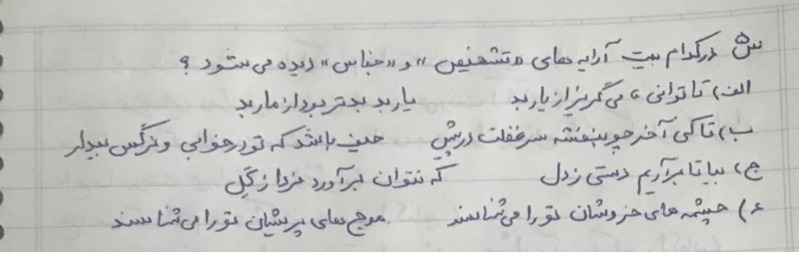 س۵ در کدام بیت آرایه های «تشخیص» و «جناس» دیده می شود ؟
الف) تا توانی، می گریز از یار بد یار بد بدتر بود از مار بد
ب) تا کی آخر چو بنفشه سر غفلت در پیش حیف باشد که تو در خوابی و نرگس بیدار
ج) بیا تا برآریم دستی ز دل که نتوان برآورد فردا ز گل
د) چشمه های خروشان تو را می شناسند موج های پریشان تو را می شناسند